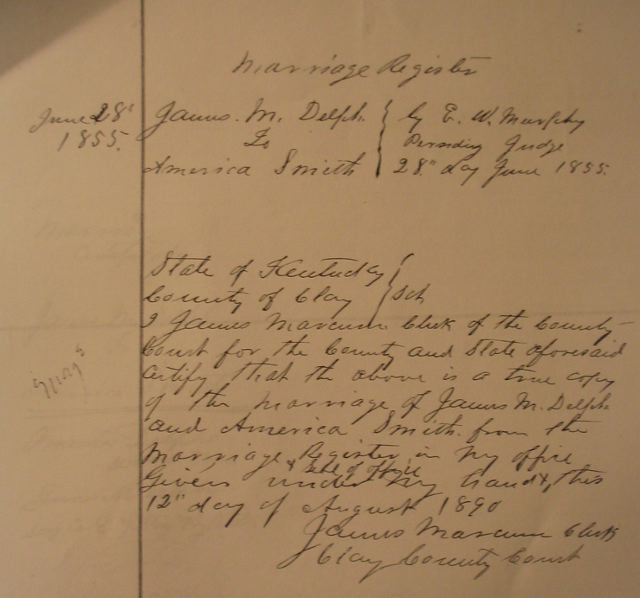 Marriage Register
June 28"
1855.
James. M. Delph
To
America Smith
by E. W. Murphy
Presiding Judge
28" day June 1855.
State of Kentucky
County of Clay
Sct
I James Marcum Clerk of the County
Court for the County and State aforesaid
Certify that the above is a true copy
of the Marriage of James M. Delph
and America Smith. from the
Marriage Register in my office
Given under my hand & seal of office this
12" day of August 1890
James Marcum Clerk
Clay County Court